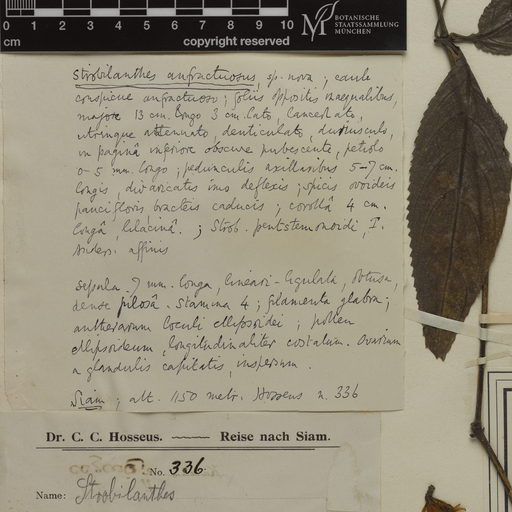 0 1 2 3 4 5 6 7 8 9 10
cm
copyright reserved
BOTANISCHE
STAATSSAMMLUNG
MÜNCHEN
Strobilanthes anfractuosus, sp. nova ; caule
conspicue anfractuoso ; foliis oppositis inaequalibus,
majore 13 cm. longo 3 cm. lato, lanceolato,
utrinque attenuato, denticulato, duriusculo,
in paginâ inferiore obscure pubescente, petiolo
0-5 mm. longo ; pedunculis axillaribus 5-7 cm.
longis, divaricatis imo deflexis ; spicis ovoideis
paucifloris bracteis caducis ; corollâ 4 cm.
longâ, lilacinâ. ; Strob. pentstemonoidi, T.
Anders. affinis
Sepala 7 mm. longa, lineari-ligulata, obtusa,
dense pilosa. Stamina 4 ; filamenta glabra ;
antherarum loculi ellipsoidei ; pollen
ellipsoideum, longitudinaliter costatum. Ovarium
a glandulis capitatis inspersum.
Siam ; alt. 1150 metr. Hosseus n. 336
Dr. C. C. Hosseus. Reise nach Siam.
No. 336
Name: Strobilanthes